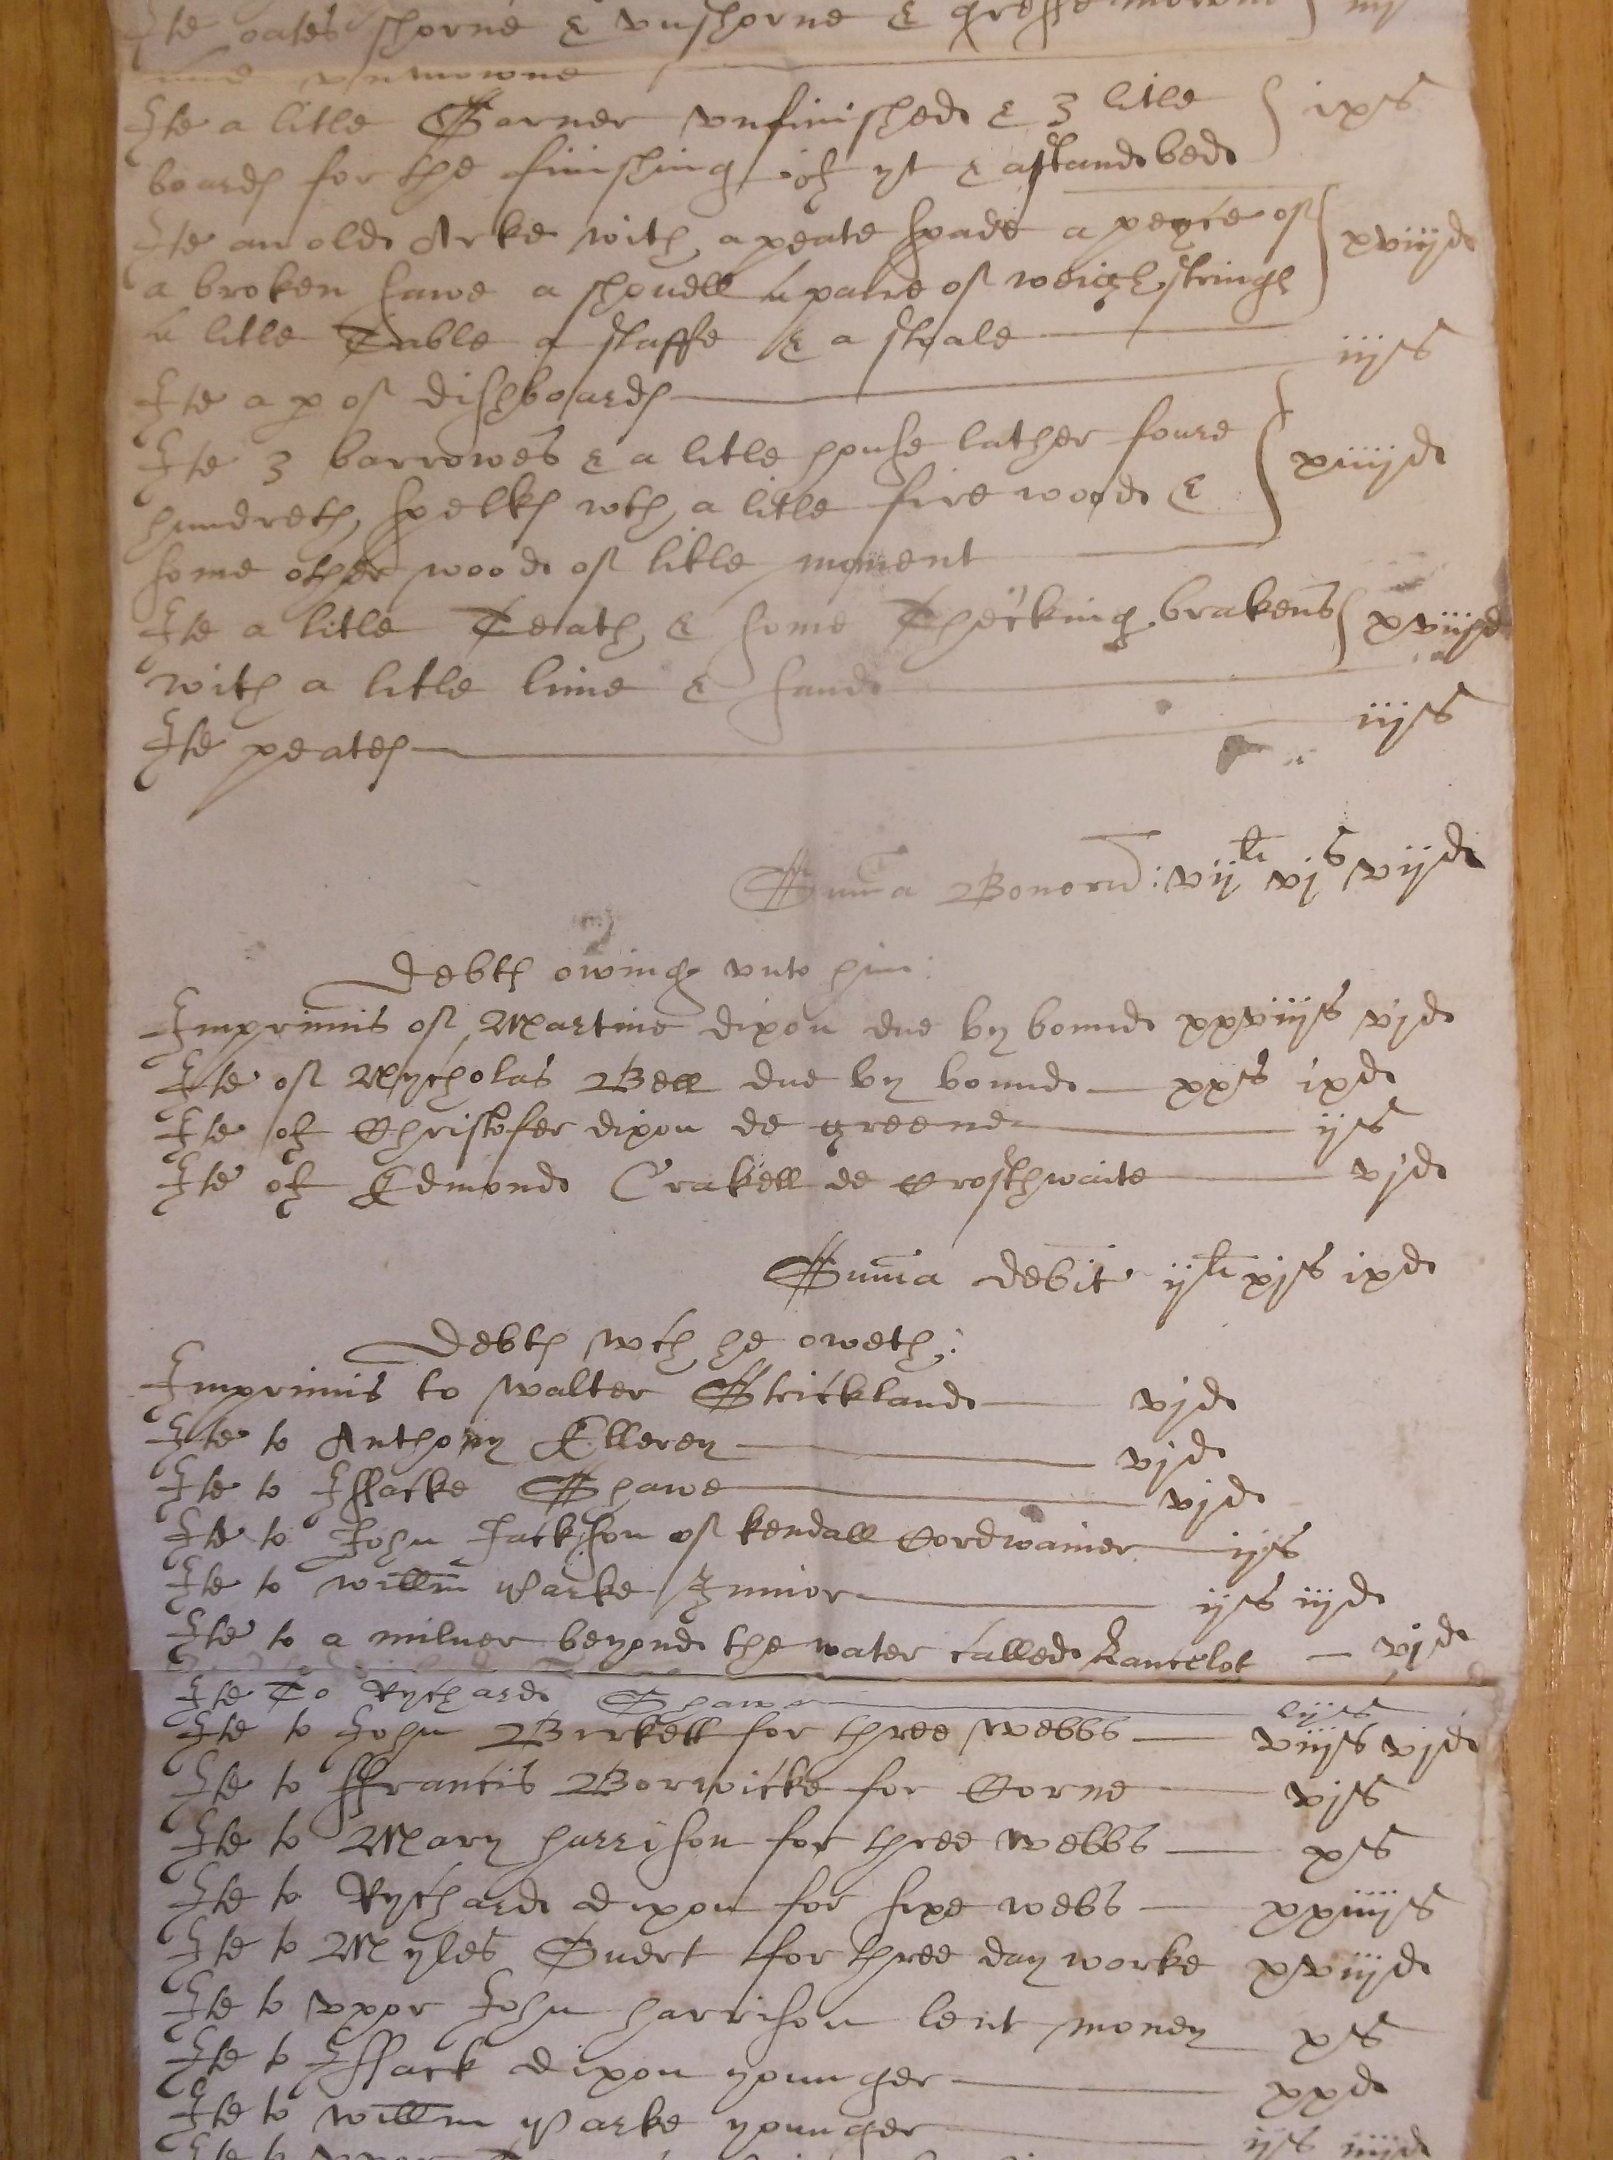 Ite oates shorne & vnshorne & gresse
vnmowne
Ite a litle Garner vnfinished & 3 litle } ixs
boards for the finishing of yt & a stand bed
Ite an old Arke with a peate spade a peyce of } xviijd
a broken sawe a shouell a paire of weigh strings
a litle Tuble a staffe & a steale
Ite a p of dishboards iijs
Ite 3 barrowes & a litle house lather foure } xiiijd
hundreth spelks wth a litle fire wood &
some other wood of litle moment
Ite a litle Teath & some Thecking brakens } xviijd
with a litle lime & sand
Ite peates iijs
Summa Bonoru : vijli vjs vijd
Debts owing vnto him:
Imprimis of Martine dixon due by bound xxviijs vjd
Ite of Nycholas Bell due by bound xxs ixd
Ite of Christofer dixon de greene ijs
Ite of Edmond Crakell de Crosthwaite vjd
Summa debit ijli xjs ixd
Debts wch he oweth:
Imprimis to Walter Strickland vjd
Ite to Anthony Ellerey vjd
Ite to Issacke Shawe vjd
Ite to John Jackson of kendall Cordwainer ijs
Ite to Willm Parke Junior ijs iijd
Ite to a milner beyond the water called Lancelot vjd
Ite To Rychard Shawe
Ite to John Birkett for three webbs viijs vjd
Ite to ffrancis Borwicke for Corne vjs
Ite to Mary harrison for three webbs xs
Ite to Rychard dixon for sixe webs xxiiijs
Ite to Myles Suert for three day worke xviijd
Ite to vxor John harrison lent money xs
Ite to Issack dixon younger xxd
Ite to Willm Parke younger ijs iiijd
Ite to vxor